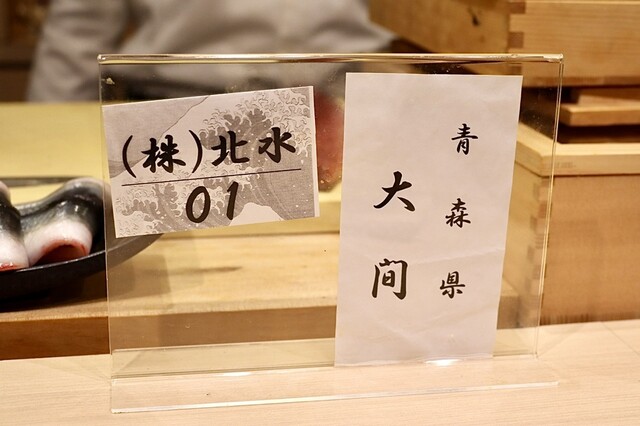 (株)北水
01
青森県
大間